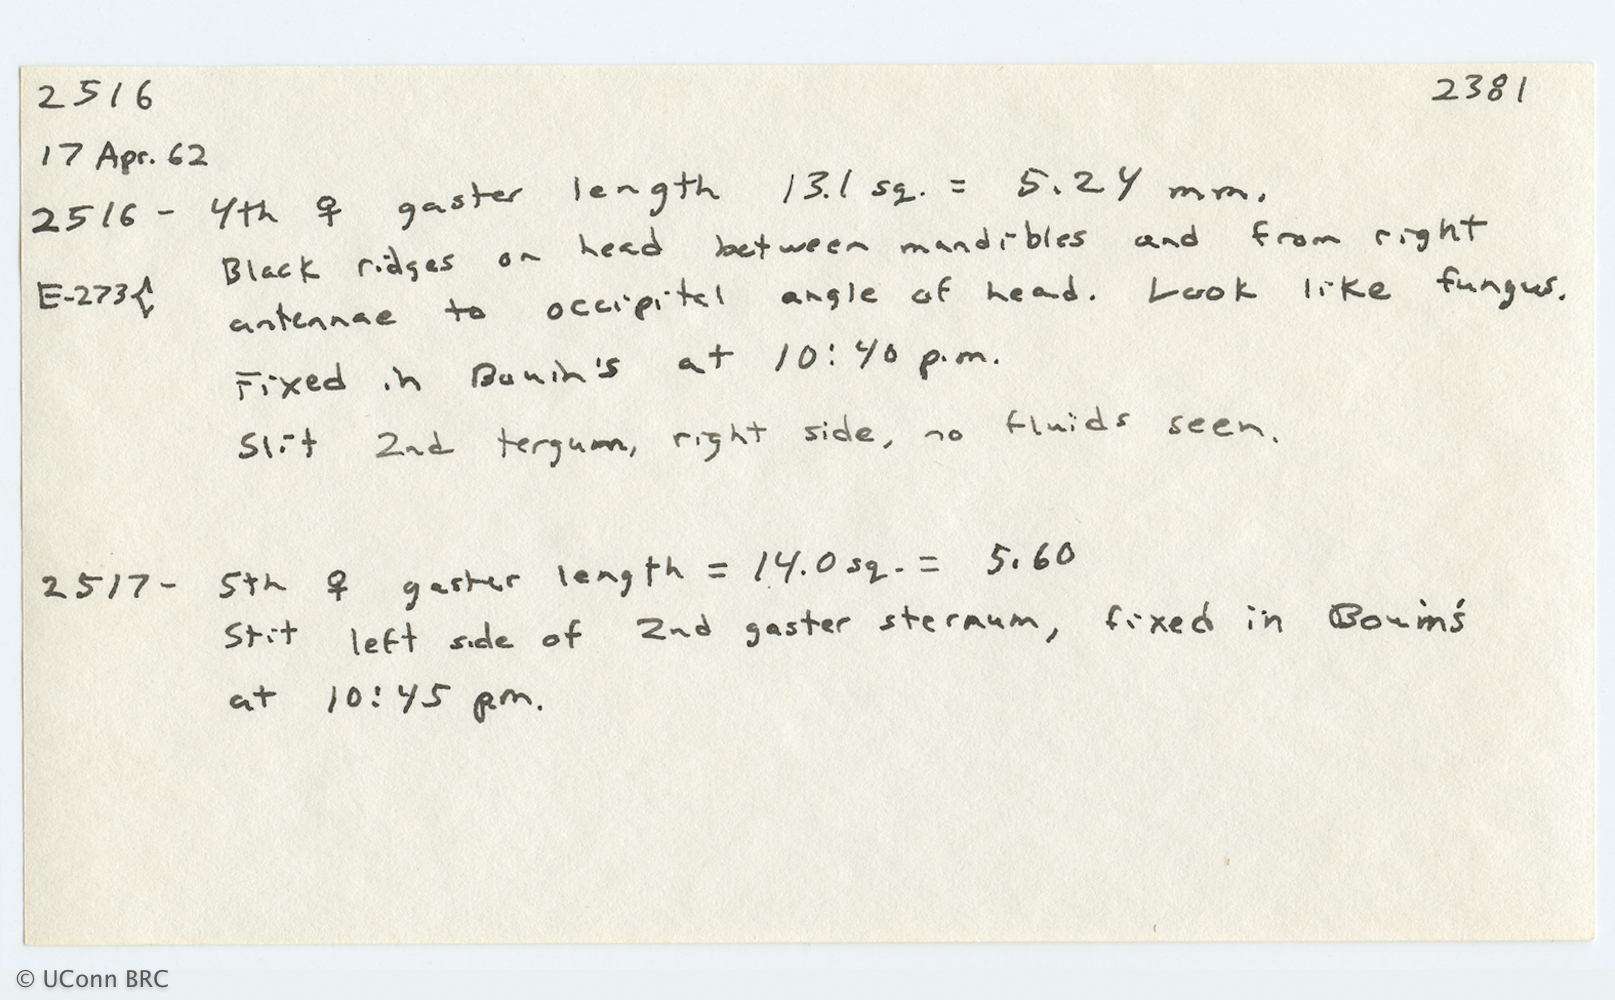 2516 2381
17 Apr. 62
2516 - 4th ♀ gaster length 13.1 sq. = 5.24 mm.
Black ridges on head between mandibles and from right
E-273{ antennae to occipital angle of head. Look like fungus.
Fixed in Bouin's at 10:40 p.m.
Slit 2nd tergum, right side, no fluids seen.
2517 - 5th ♀ gaster length = 14.0 sq. = 5.60
Slit left side of 2nd gaster sternum, fixed in Bouin's
at 10:45 pm.
© UConn BRC